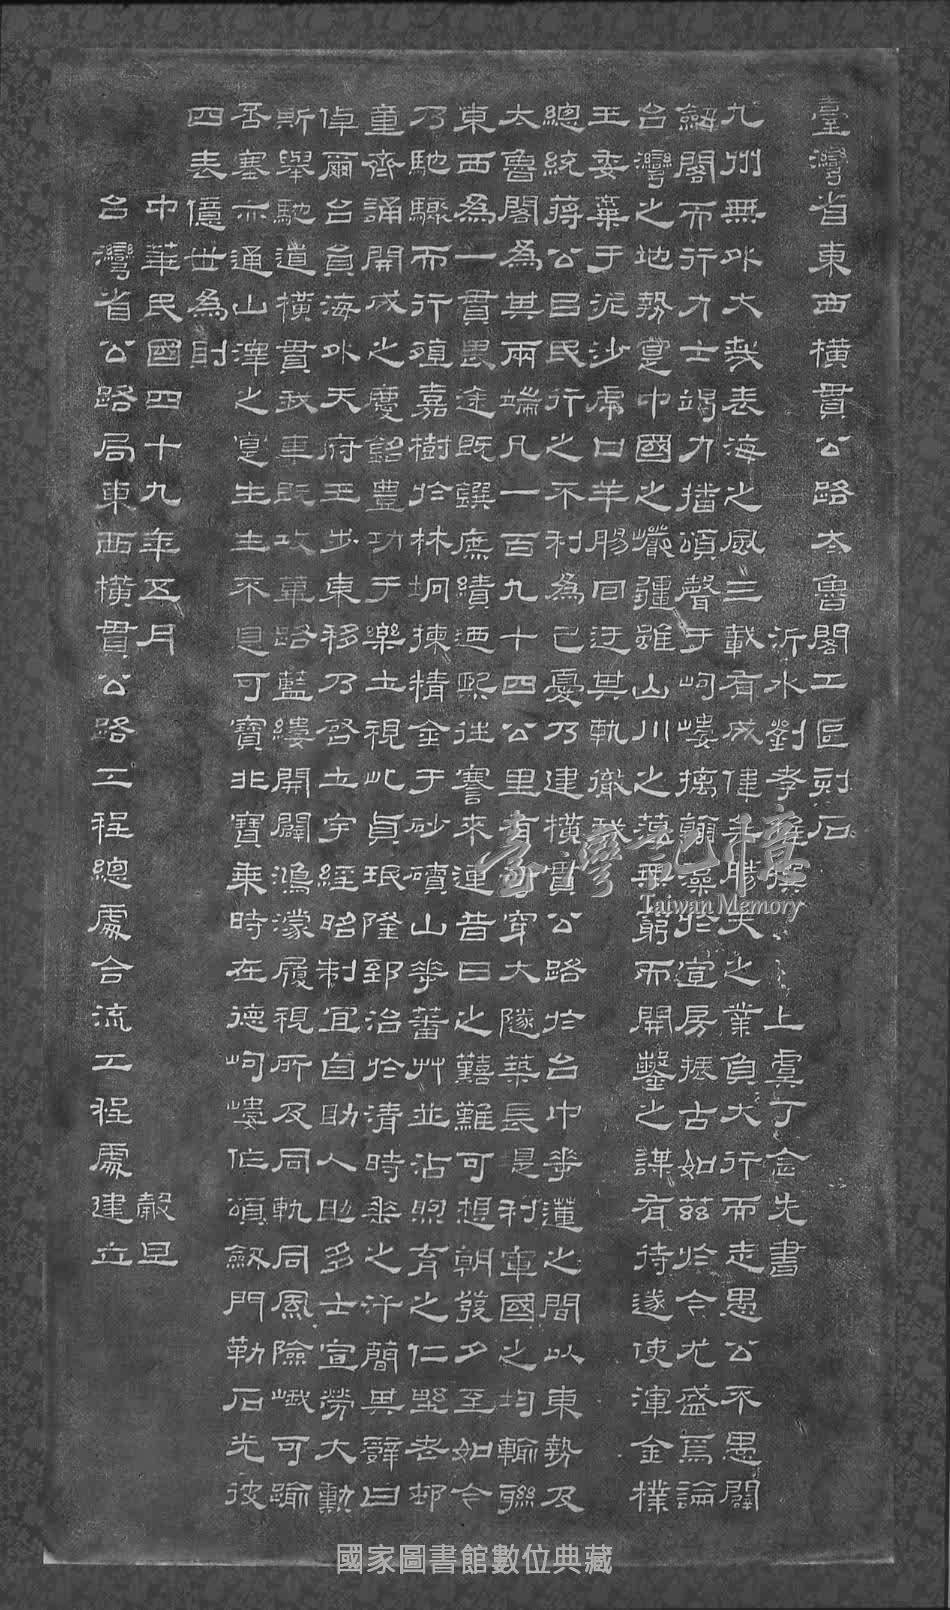 臺灣省東西橫貫公路太魯閣工區刻石
沂水劉孝推撰上虞丁念先書
九州無外大哉表海之風三載有成偉矣勝天之業負大行而走愚公不愚闢
劔閣而行力士竭力播頌聲于岣嶁摛翰藻於宣房振古如茲於今尤盛焉論
台灣之地勢寔中國之巖疆雖山川之蘊無窮而開鑿之謀有待遂使渾金樸
玉委棄于泥沙虎口羊腸回迂其軌徹我
總統蔣公㠯民行之不利為己憂乃建橫貫公路於台中華蓮之間以東勢及
太魯閣為其兩端凡一百九十四公里有奇穿大隧築長堤利軍國之均輸聯
東西為一貫畏途既鐉庶績迺熙往謇來連昔日之囏難可想朝發夕至如今
乃馳驟而行殖嘉樹於林坰揀精金于砂礦山華蕃艸並沾煦育之仁野老邨
童齊誦開成之慶銘豊功于樂土視此貞珉隆郅治於清時垂之汗簡其辭曰
倬爾台員海外天府玉步東移乃啓土宇經昭制宜自助人助多士宣勞大勳
斯舉馳道橫貫我車既攻篳路藍縷開闢鴻濛履視所及同軌同風險峨可踰
否塞亦通山澤之寔生生不息可寶非寶乘時在德岣嶁作頌劔門勒石光彼
四表億世為則
中華民國四十九年五月 穀旦
台灣省公路局東西橫貫公路工程總處合流工程處建立
臺灣記憶
Taiwan Memory
國家圖書館數位典藏